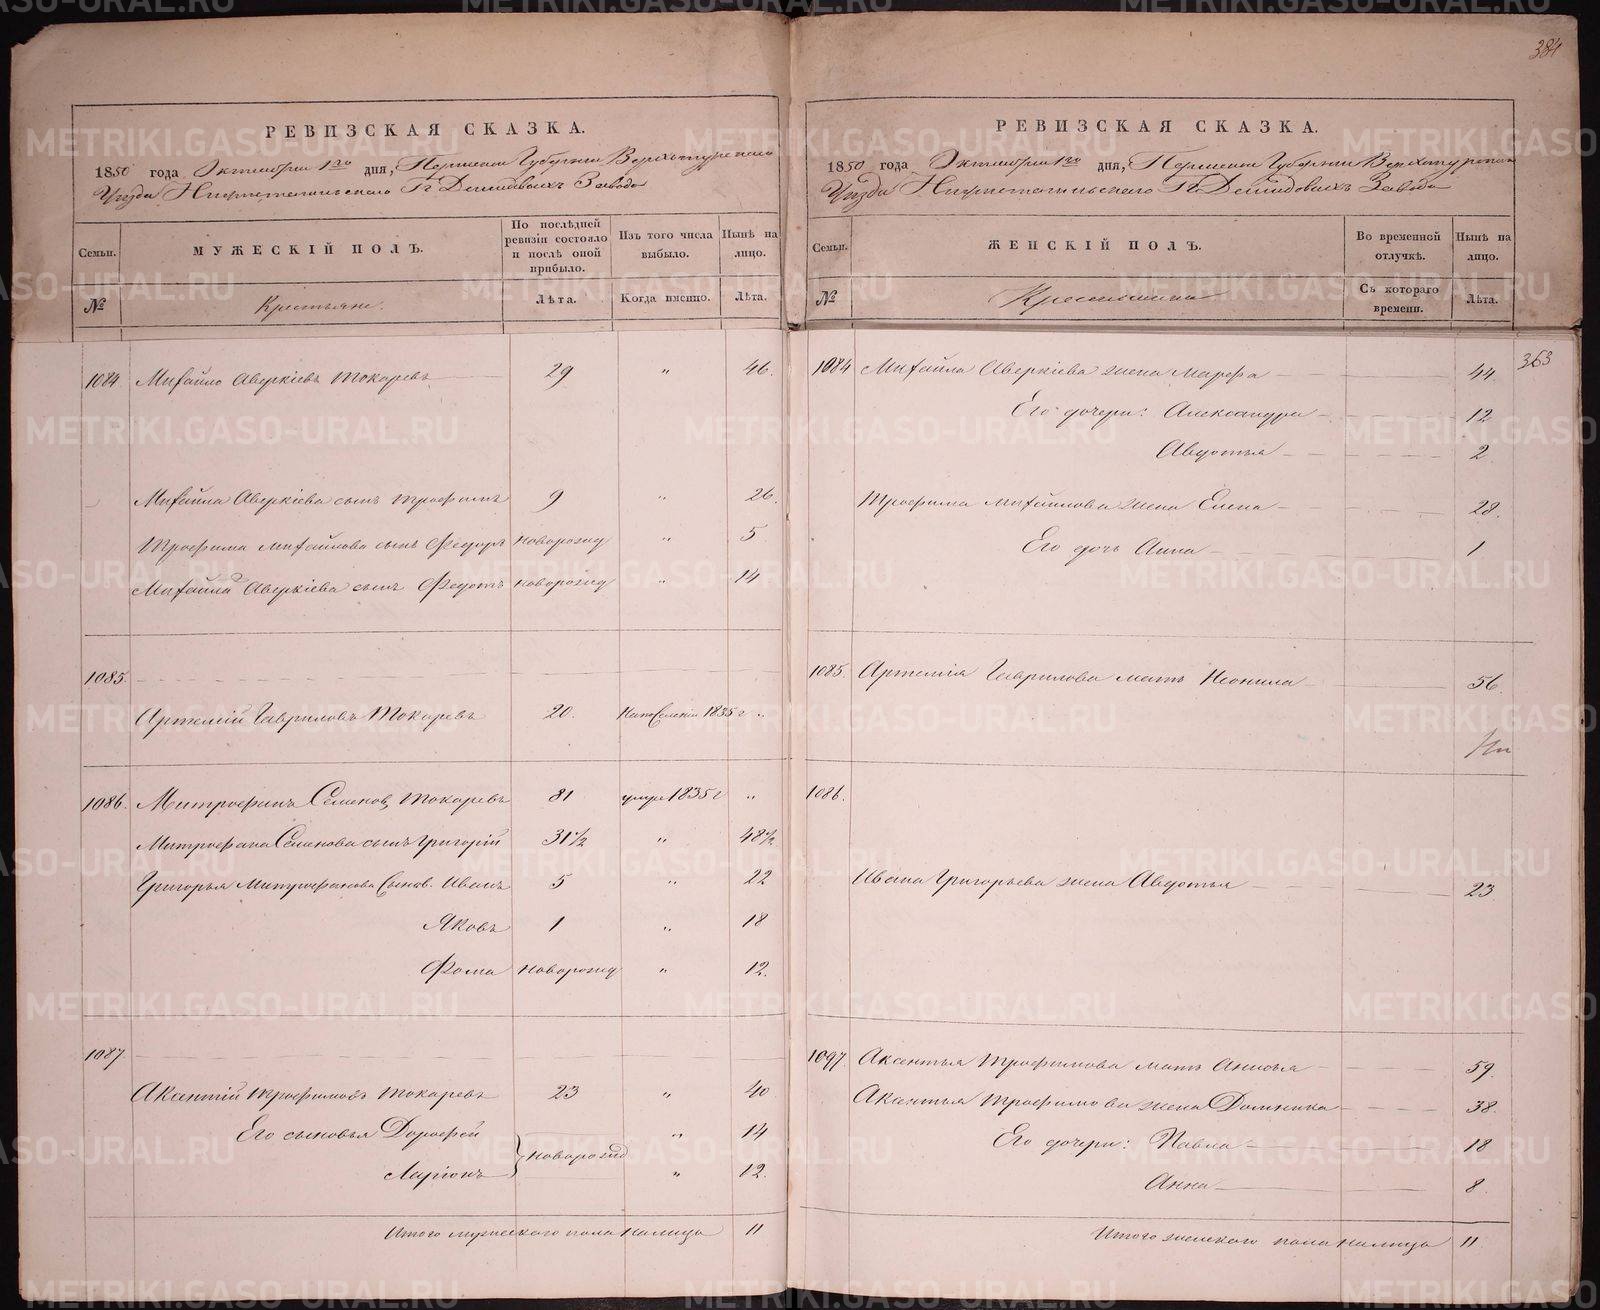 384
РЕВИЗСКАЯ СКАЗКА.
1850 года Октября 1го дня, Пермской Губернии Верхотурскаго
Уѣзда Нижнетагильскаго Гг Демидовыхъ Завода
Семьи. МУЖЕСКІЙ ПОЛЪ. По послѣдней ревизіи состояло и послѣ оной прибыло. Изъ того числа выбыло. Нынѣ на лицо.
№ Крестьяне. Лѣта. Когда именно. Лѣта.
1084 Михайло Аверкіевъ Токаревъ 29 " 46.
Михайла Аверкіева сынъ Трофимъ 9 " 26.
Трофима Михайлова сынъ Федоръ новорожд " 5
Михайла Аверкіева сынъ Федотъ новорожд " 14
1085.
Артемій Гавриловъ Токаревъ 20. 1835 г "
1086. Митрофанъ Семеновъ Токаревъ 81 умре 1835 г "
Митрофана Семенова сынъ Григорій 31½ " 48½
Григорья Митрофанова Сынов. Иванъ 5 " 22
Яковъ 1 " 18
Фома новорожд " 12.
1087
Аксентій Трофимовъ Токаревъ 23 " 40
Его сыновья Дорофей " 14
новорожд
Ларіонъ " 12.
Итого мужескаго пола налицо 11
РЕВИЗСКАЯ СКАЗКА.
1850 года Октября 1го дня, Пермской Губерніи Верхотурскаго
Уѣзда Нижнетагильскаго Гг Демидовыхъ Завода
Семьи. ЖЕНСКІЙ ПОЛЪ. Во временной отлучкѣ. Нынѣ на лицо.
№ Крестьянки Съ котораго времени. Лѣта.
363
1084 Михайла Аверкіева жена Марфа 44
Его дочери: Александра 12
Авдотья 2
Трофима Михайлова жена Елена 28.
Его дочь Анна 1
1085. Артемія Гаврилова мать Неонила 56.
1086.
Ивана Григорьева жена Авдотья 23
1097. Аксентья Трофимова мать Анисья 59.
Аксентья Трофимова жена Домника 38.
Его дочери: Павла 18
Анна 8.
Итого женскаго пола налицо 11.
METRIKI.GASO-URAL.RU